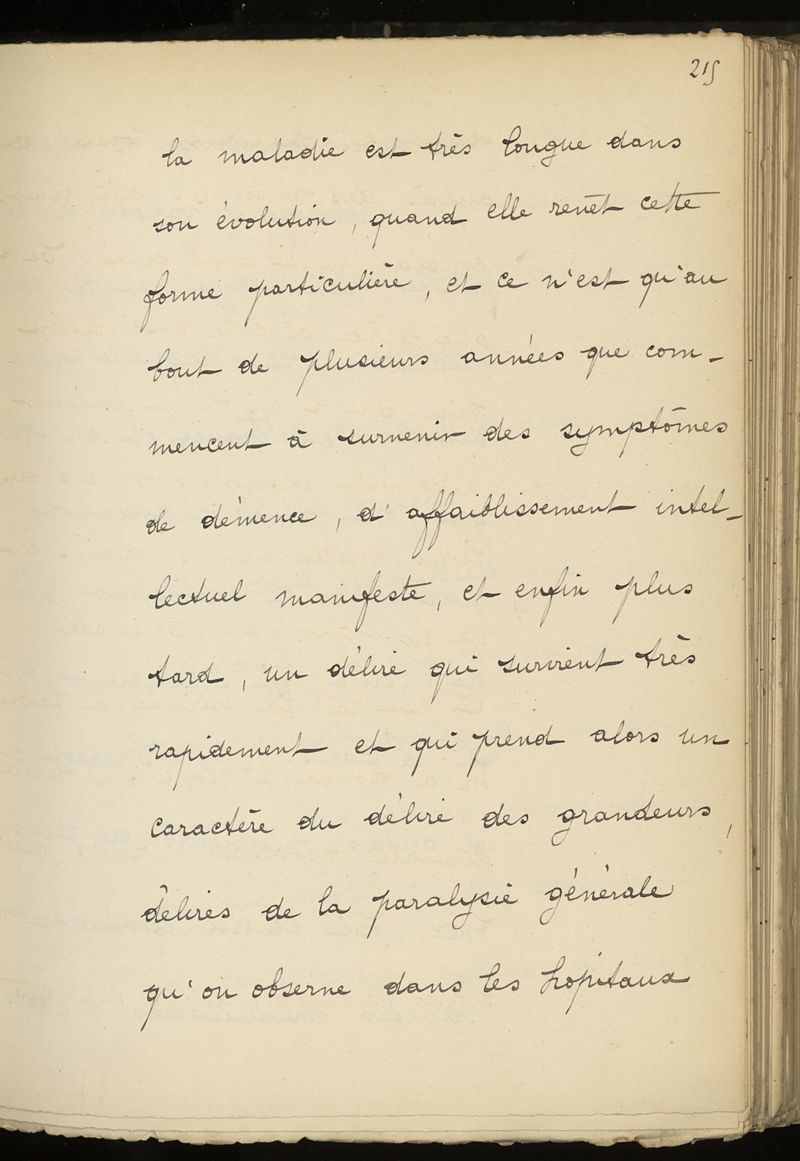 215
la maladie est très longue dans
son évolution, quand elle revêt cette
forme particulière, et ce n'est qu'au
bout de plusieurs années que com-
mencent à survenir des symptômes
de démence, d'affaiblissement intel-
lectuel manifeste, et enfin plus
tard, un délire qui survient très
rapidement et qui prend alors un
caractère du délire des grandeurs,
délires de la paralysie générale
qu'on observe dans les hôpitaux